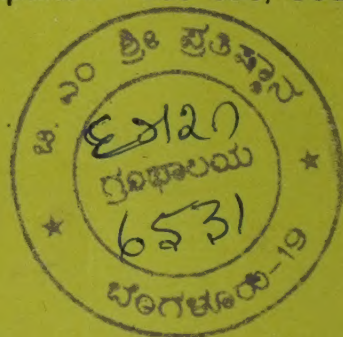 ಬಿ. ಎಂ ಶ್ರೀ ಪ್ರತಿಷ್ಠಾನ
ಗ್ರಂಥಾಲಯ
6531
ಬೆಂಗಳೂರು-19